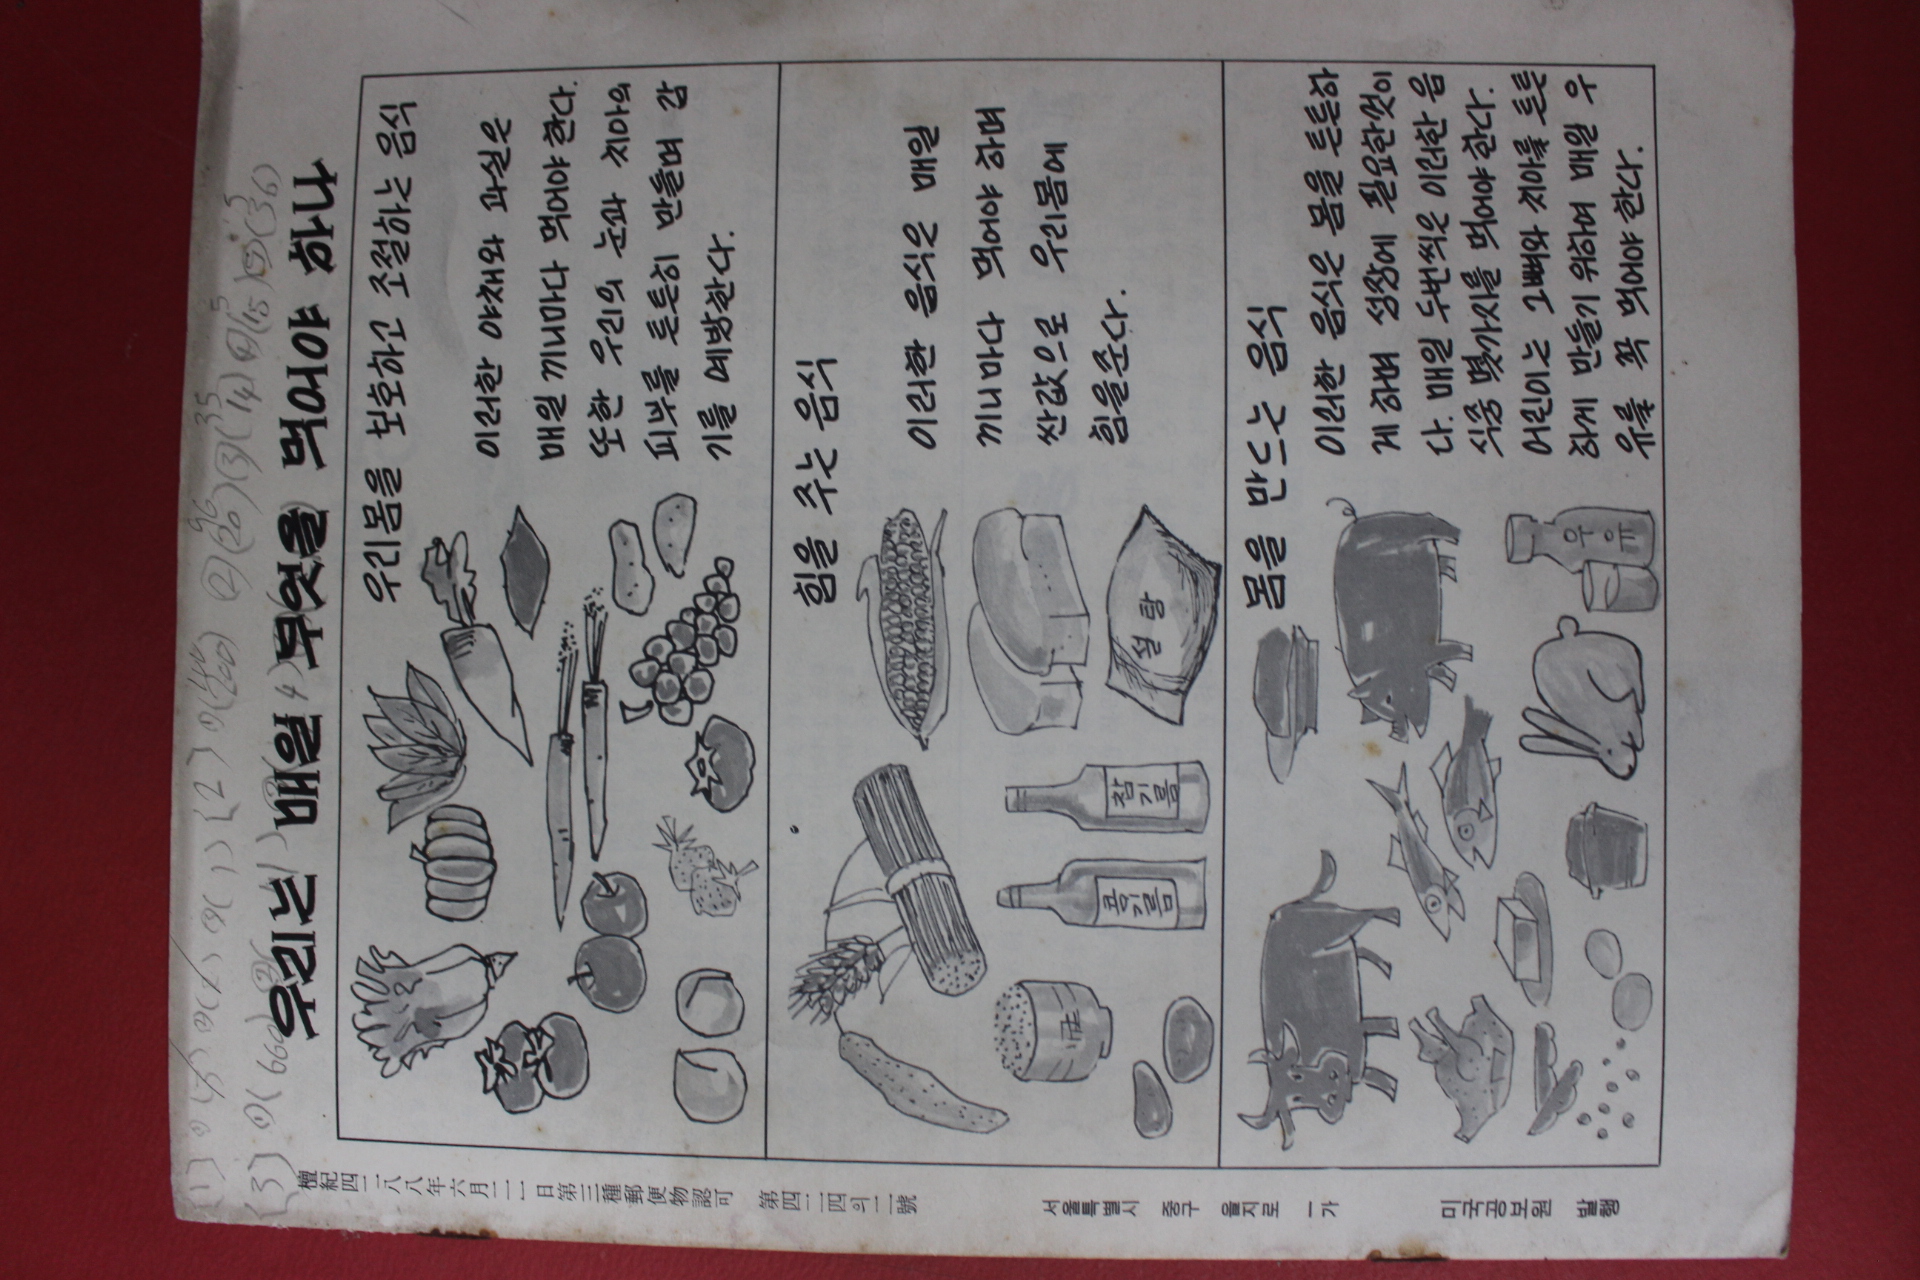 우리는 매일 무엇을 먹어야 하나
우리몸을 보호하고 조절하는 음식
이러한 야채와 과실은
매일 끼니마다 먹어야 한다.
또한 우리의 눈과 치아의
피부를 튼튼히 만들며 감
기를 예방한다.
힘을 주는 음식
이러한 음식은 매일
끼니마다 먹어야 하며
싼값으로 우리몸에
힘을준다.
설탕
참기름
콩기름
몸을 만드는 음식
이러한 음식은 몸을 튼튼하
게 하며 성장에 필요한것이
다. 매일 두번씩은 이러한 음
식중 몇가지를 먹어야 한다.
어린이는 그뼈와 치아를 튼튼
하게 만들기 위하여 매일 우
유를 꼭 먹어야 한다.
우유
檀紀四二八八年六月二一日第三種郵便物認可
서울특별시 중구 을지로 一가
미국공보원 발행